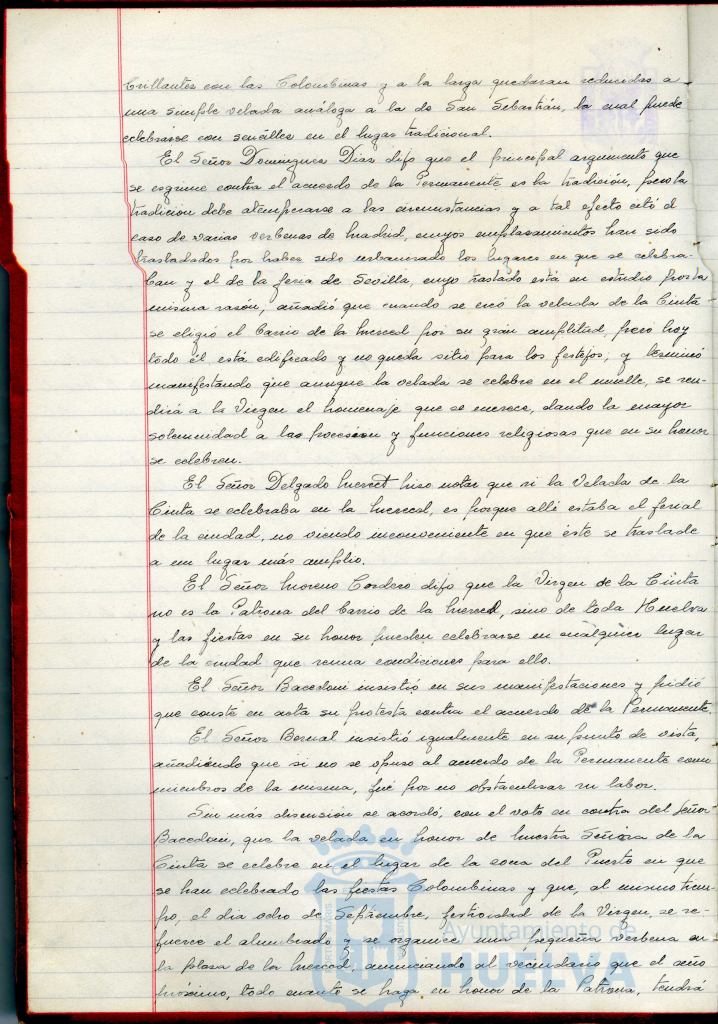 brillantes con las Colombinas y a la larga quedaran reducidas a
una simple velada análoga a la de San Sebastián, la cual puede
celebrarse con sencillez en el lugar tradicional.
El Señor Dominguez Diaz dijo que el principal argumento que
se esgrime contra el acuerdo de la Permanente es la tradición, pero la
tradicion debe atemperarse a las circunstancias y a tal efecto citó el
caso de varias verbenas de Madrid, cuyos emplazamientos han sido
trasladados por haber sido urbanizado los lugares en que se celebra-
ban y el de la feria de Sevilla, cuyo traslado está en estudio por la
misma razón, añadió que cuando se creó la velada de la Cinta
se eligió el barrio de la Merced por su gran amplitud, pero hoy
todo él está edificado y no queda sitio para los festejos; y terminó
manifestando que aunque la velada se celebre en el muelle, se ren-
dirá a la Virgen el homenaje que se merece, dando la mayor
solemnidad a las procesion y funciones religiosas que en su honor
se celebren.
El Señor Delgado hizo notar que si la Velada de la
Cinta se celebraba en la Merced, es porque allí estaba el ferial
de la ciudad, no viendo inconveniente en que éste se traslade
a un lugar más amplio.
El Señor Moreno Cordero dijo que la Virgen de la Cinta
no es la Patrona del barrio de la Merced, sino de toda Huelva
y las fiestas en su honor pueden celebrarse en cualquier lugar
de la ciudad que reuna condiciones para ello.
El Señor Bacedoni insistió en sus manifestaciones y pidió
que conste en acta su protesta contra el acuerdo de la Permanente.
El Señor Bernal insistió igualmente en su punto de vista,
añadiendo que si no se opuso al acuerdo de la Permanente como
miembros de la misma, fué por no obstaculizar su labor.
Sin más discusion se acordó, con el voto en contra del Señor
Bacedoni, que la velada en honor de Nuestra Señora de la
Cinta se celebre en el lugar de la zona del Puerto en que
se han celebrado las fiestas Colombinas y que, al mismo tiem-
po, el dia ocho de Septiembre, festividad de la Virgen, se re-
fuerce el alumbrado y se organice una pequeña verbena en
la plaza de la Merced, anunciando al vecindario que el año
próximo, todo cuanto se haga en honor de la Patrona, tendrá
Ayuntamiento de
HUELVA